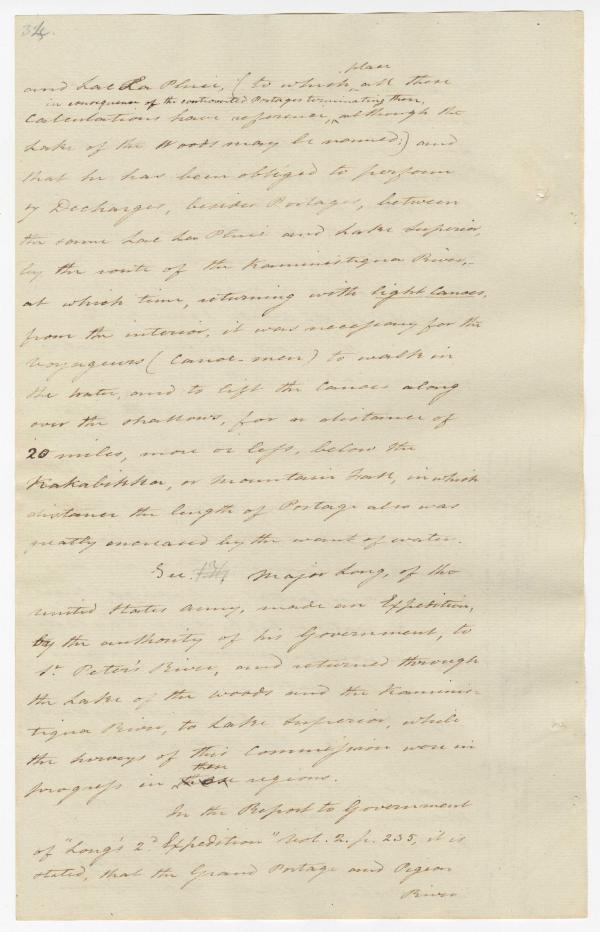 34.
place
and Lac La Pluie, (to which all these
in consequence of the controverted Portages terminating there,
Calculations have reference, although the
Lake of the Woods may be named;) and
that he has been obliged to perform
7 Decharges, besides Portages, between
the same Lac La Pluie and Lake Superior,
by the route of the Kaministiqua River,
at which time, returning with light Canoes,
from the interior, it was necessary for the
Voyageurs (Canoe-men) to walk in
the water, and to lift the Canoes along
over the shallows, for a distance of
20 miles, more or less, below the
Kakabikka, or Mountain Fall, in which
distance the length of Portage also was
greatly encreased by the want of water.
Sec. Major Long, of the
United States Army, made an Expedition,
by the authority of his Government, to
St. Peter's River, and returned through
the Lake of the Woods and the Kaminis-
tiqua River, to Lake Superior, while
the surveys of this Commission were in
then
progress in these regions.
In the Report to Government
of "Long's 2d Expedition" Vol. 2. p. 235, it is
stated, that the Grand Portage and Pigeon
River